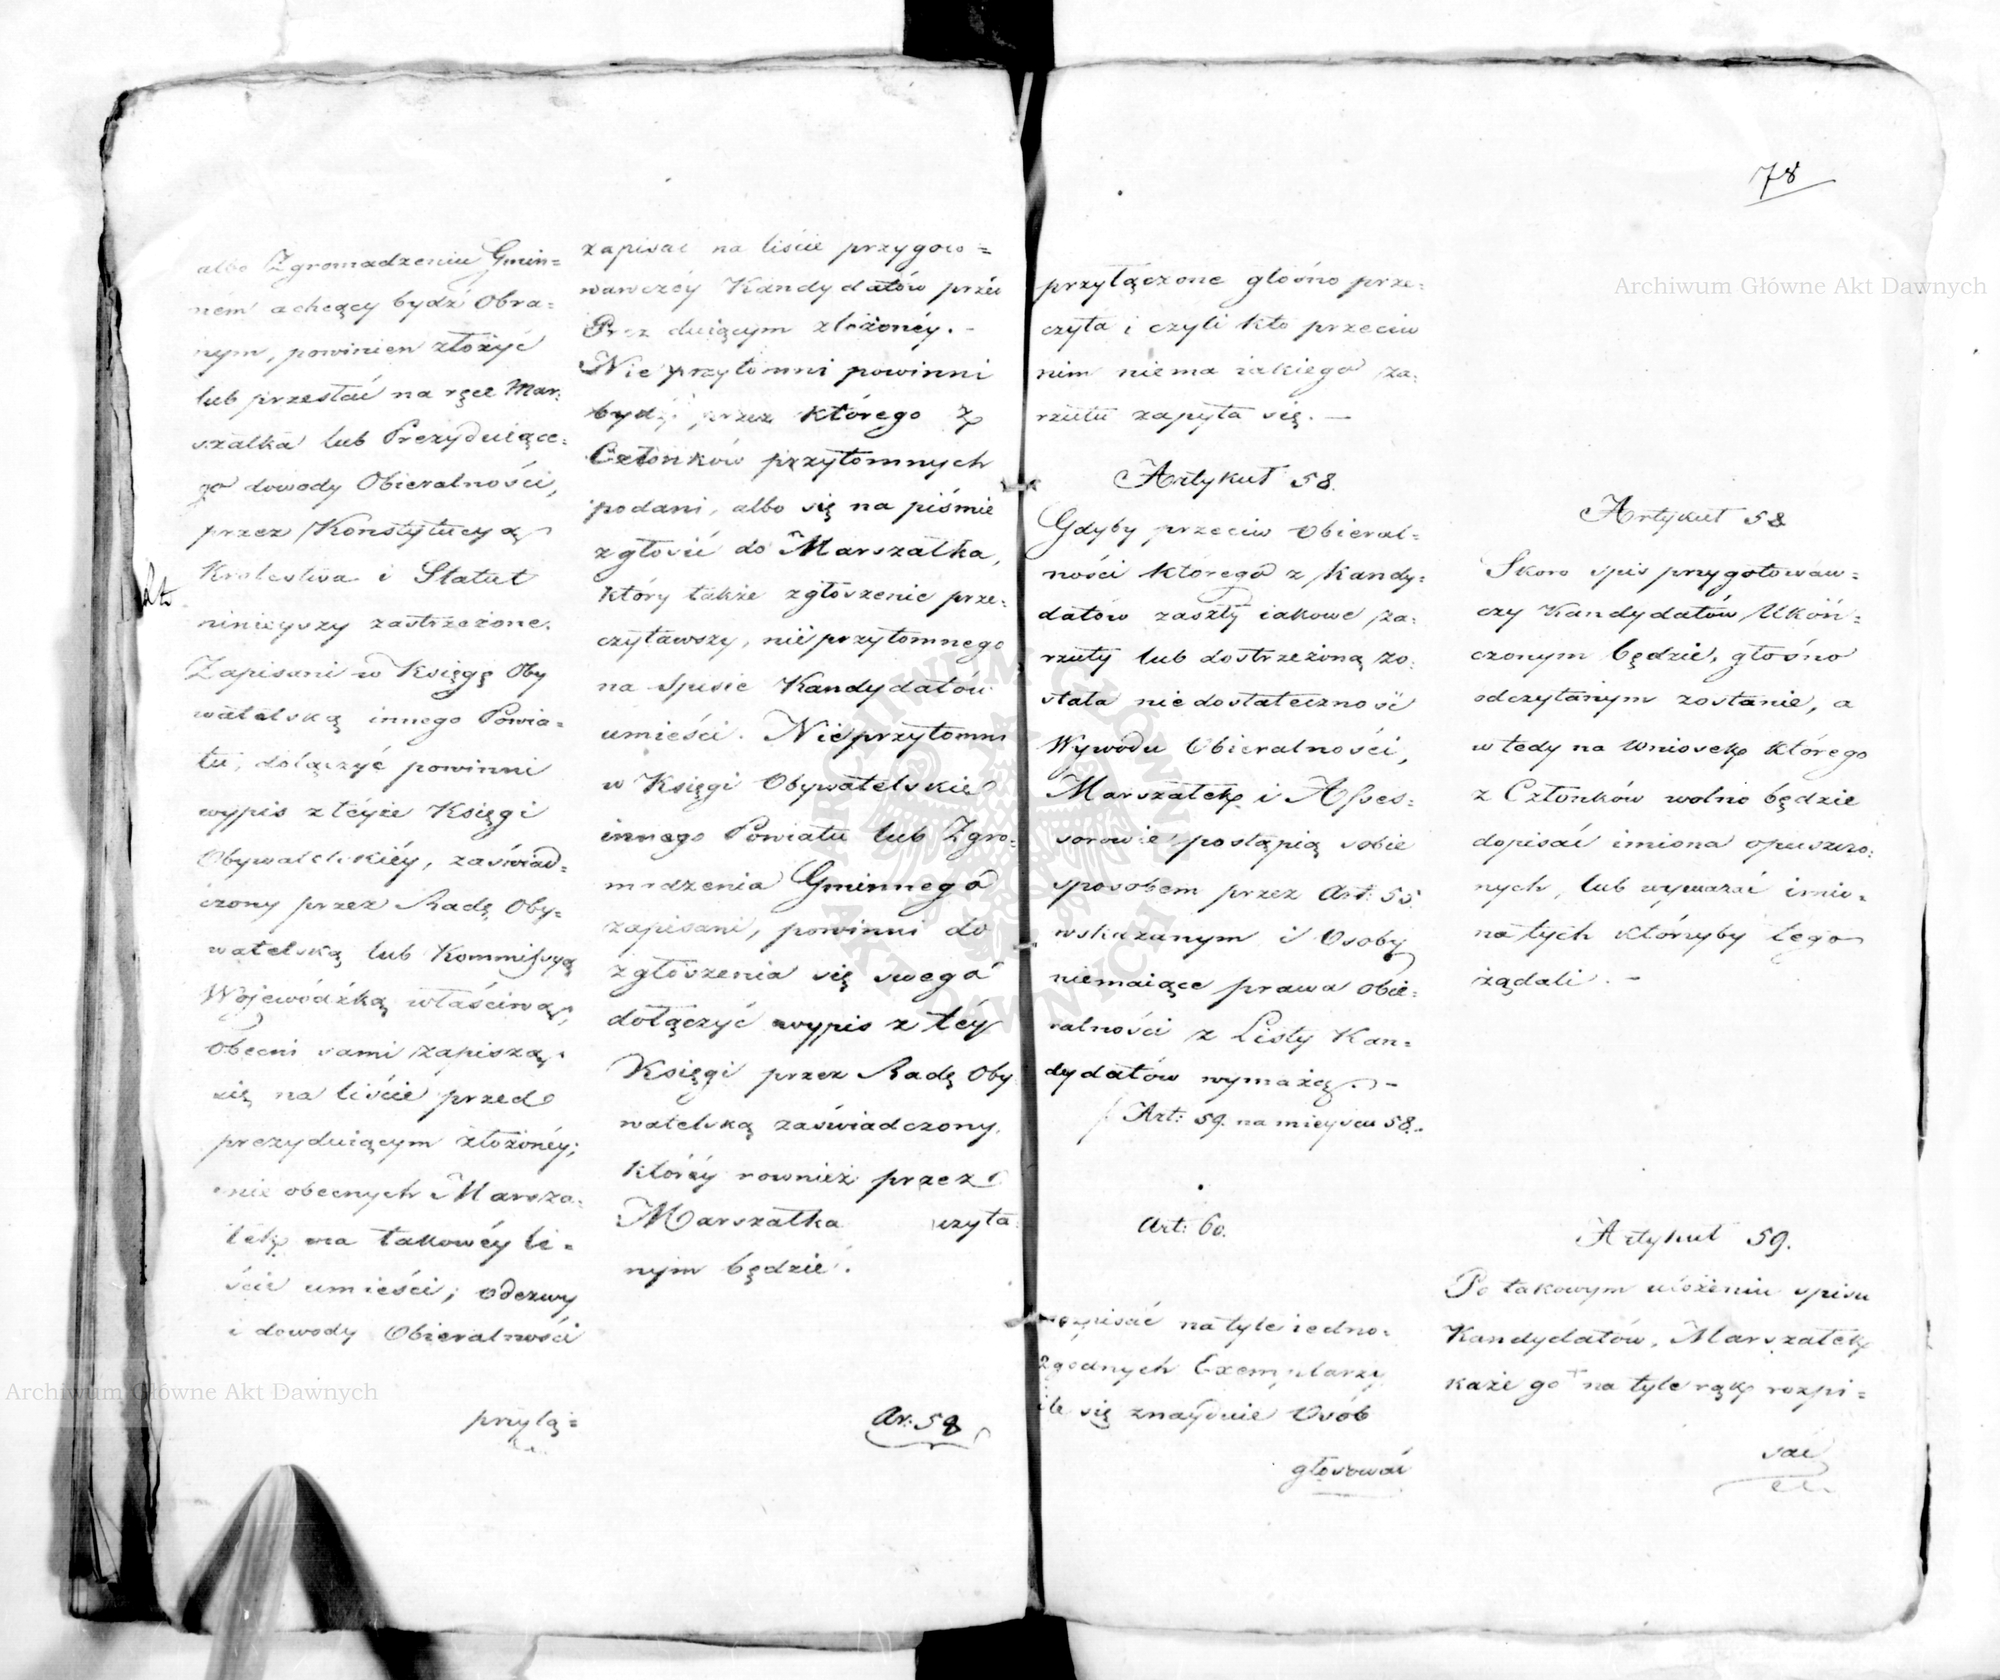 albo Zgromadzeniu Gmin=
ném a chcący bydź Obra=
nym, powinien złożyć
lub przesłać na ręce Mar:
szałka lub Prezyduiące=
go dowody Obieralności,
przez Konstytucyą
Krolestwa i Statut
ninieyszy zastrzeżone.
Zapisani w Księgę Oby
watelską innego Powia=
tu, dołączyć powinni
wypis z téyże Księgi
Obywatelskiéy, zaświad=
czony przez Radę Oby=
watelską lub Kommissyą
Wojewódzką właściwą;
Obecni sami zapiszą
się na liście przed
prezyduiącym złożonéy;
nie obecnych Marsza=
łek na takowéy li=
ście umieści; odezwy
i dowody Obieralności
przyłą=
zapisać na liście przygoto=
wawczéy Kandydatów przed
Prezyduiącym złożonéy. -
Nieprzytomni powinni
bydź przez którego z
Członków przytomnych
podani, albo się na piśmie
zgłosić do Marszałka,
który także zgłoszenie prze=
czytawszy, nieprzytomnego
na Spisie Kandydatów
umieści. Nieprzytomni
w Księgi Obywatelskie
innego Powiatu lub Zgro=
madzenia Gminnego
zapisani, powinni do
zgłoszenia się swego
dołączyć wypis z téy
Księgi przez Radę Oby
watelską zaświadczony,
któréy rownież przez
Marszałka czyta
nym będzie.
Ar: 58
78
przyłączone głośno prze=
czyta i czyli kto przeciw
nim niema iakiego za=
rzutu zapyta się. —
Artykuł 58.
Gdyby przeciw Obieral=
ności którego z Kandy=
datów zaszły iakowe za=
rzuty lub dostrzeżoną zo=
stała niedostateczność
Wywodu Obieralności,
Marszałek i Asses=
sorowie postąpią sobie
sposobem przez Art: 55.
wskazanym i Osoby
niemaiące prawa Obie=
ralności z Listy Kan=
dydatów wymażą. -
Art: 59. na mieyscu 58.
Art: 60.
rozpisać na tyle iedno=
zgodnych Exemplarzy
ile się znayduie Osób
głosować
Artykuł 58
Skoro spis przygotowaw=
czy Kandydatów Ukoń=
czonym będzie, głośno
odczytanym zostanie, a
wtedy na wniosek którego
z Członków wolno będzie
dopisać imiona opuszczo=
nych, lub wymazać imio=
na tych którzyby tego
żądali. -
Artykuł 59.
Po takowym ułożeniu spisu
Kandydatów, Marszałek
każe go na tyle rąk rozpi=
sać
Archiwum Główne Akt Dawnych
Archiwum Główne Akt Dawnych
ARCHIWUM GŁÓWNE AKT DAWNYCH